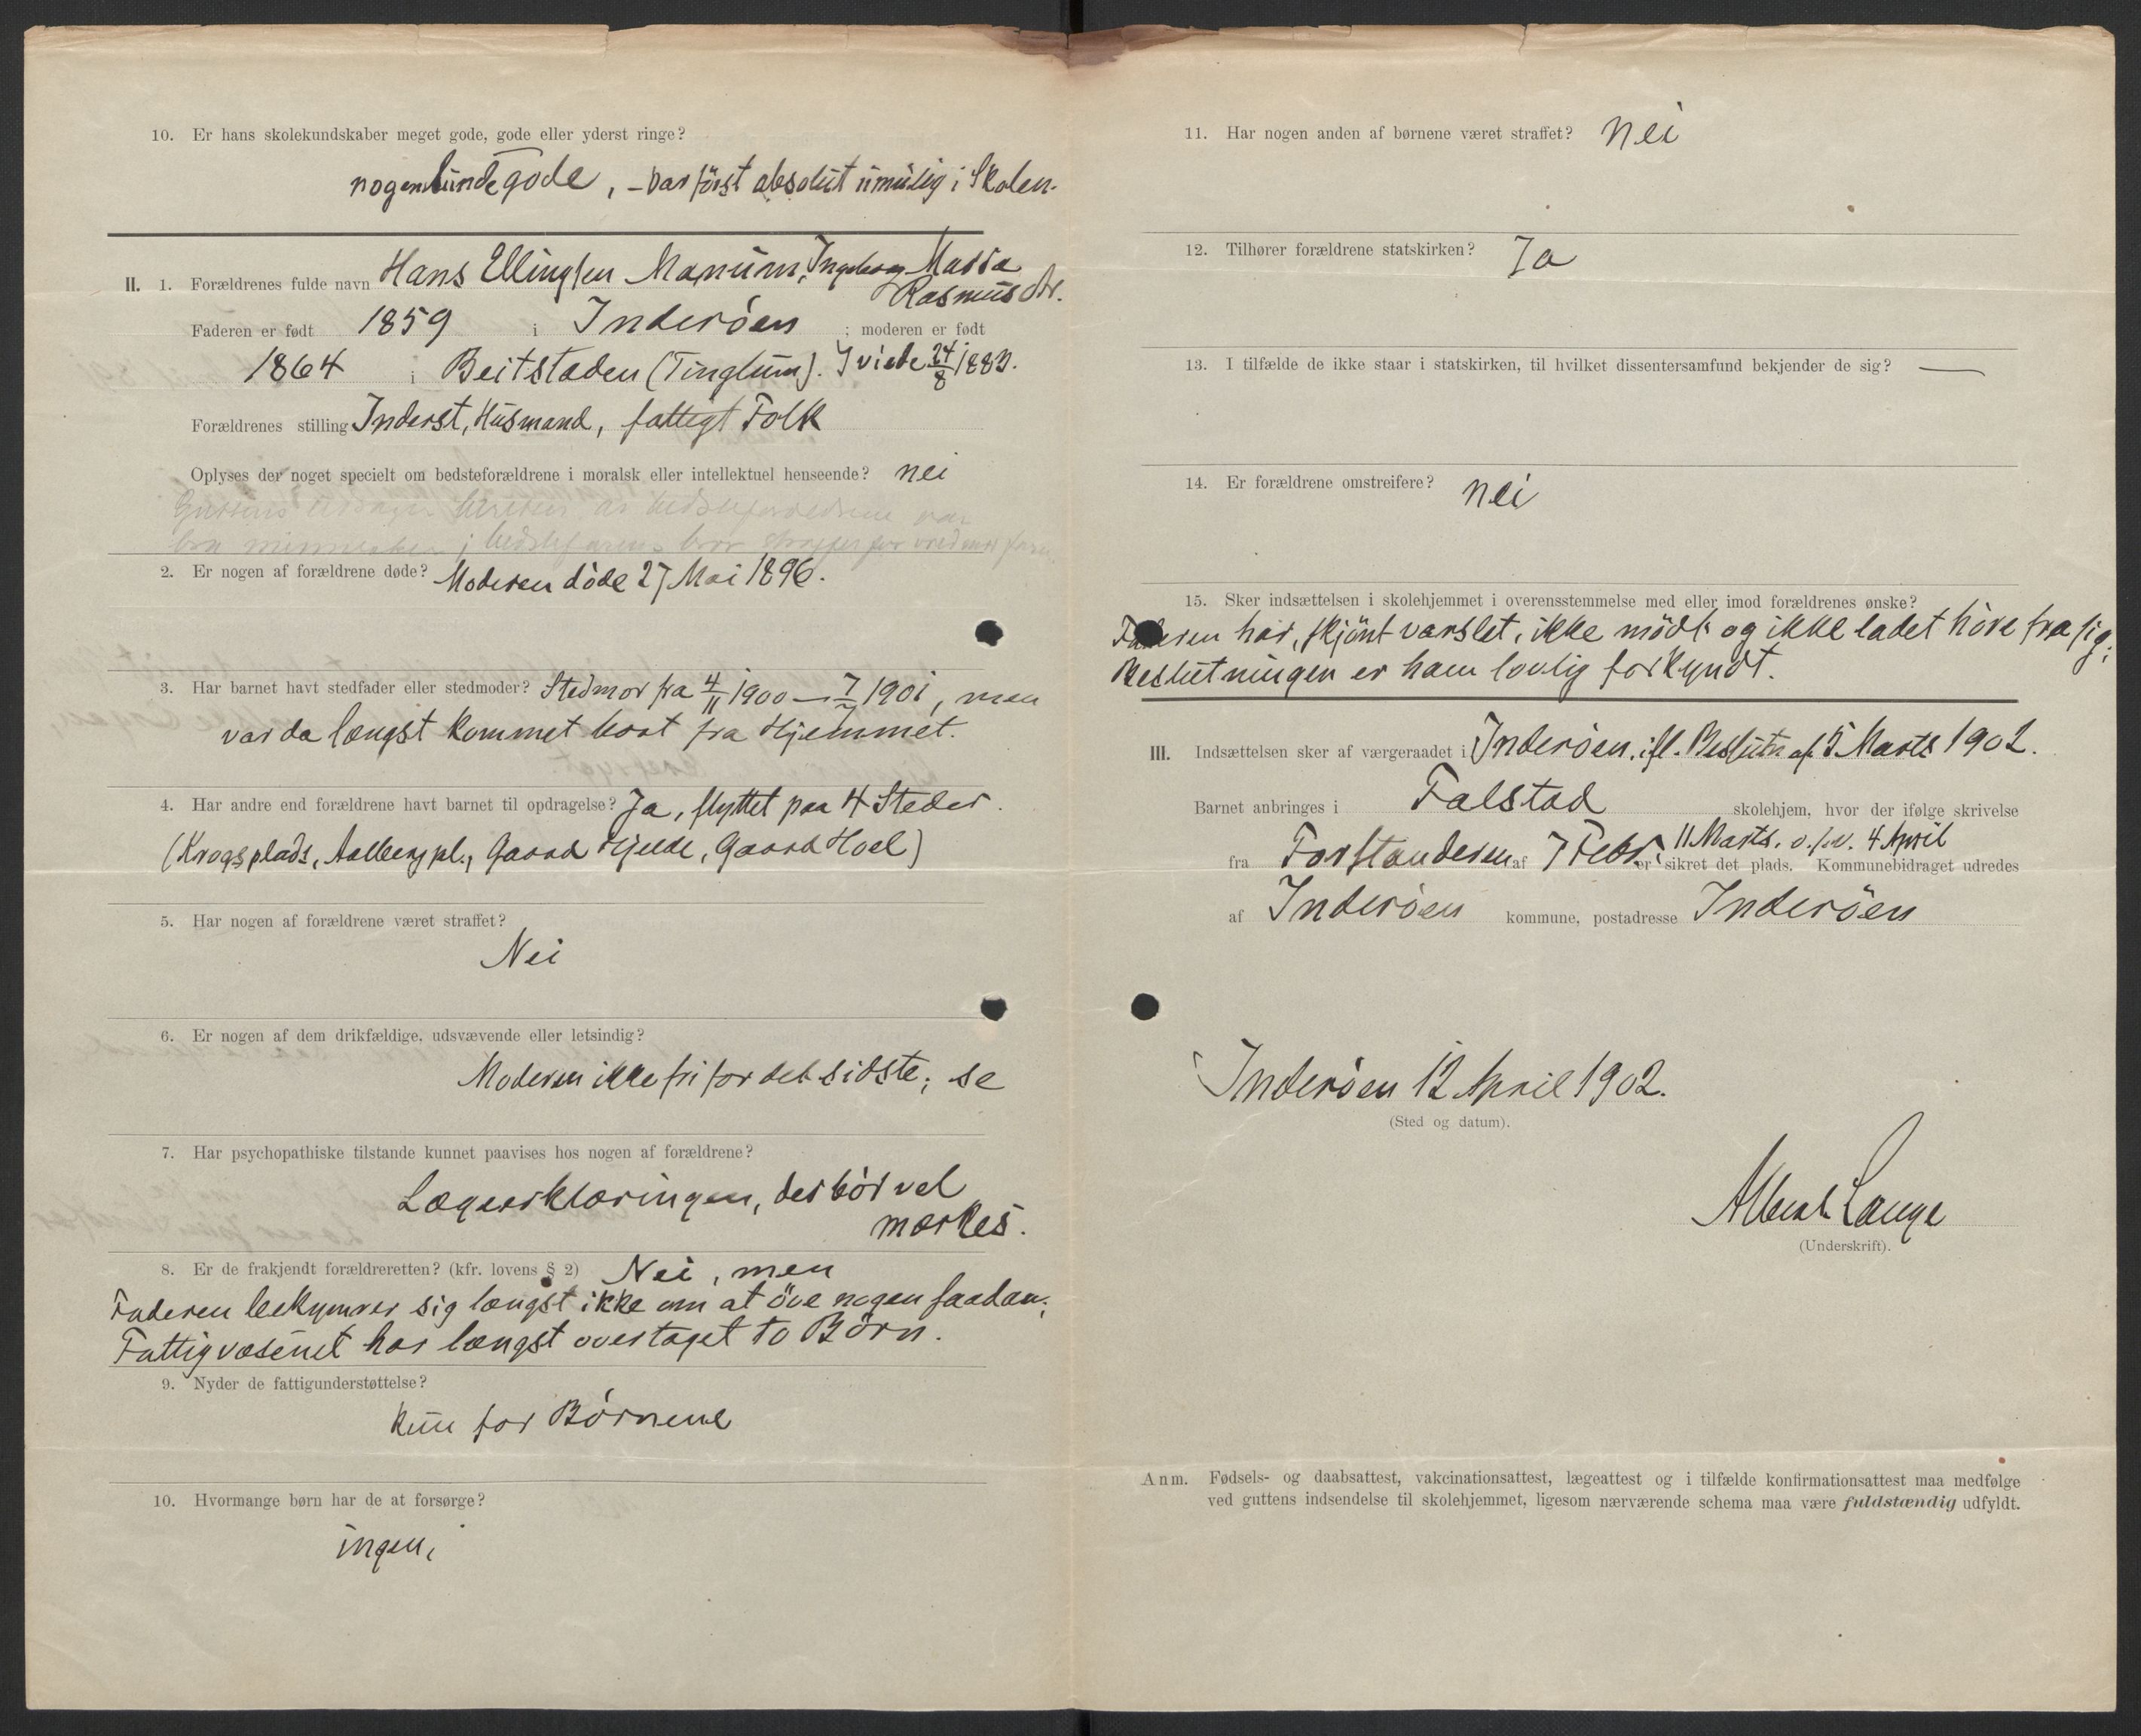 10. Er hans skolekundskaber meget gode, gode eller yderst ringe?
nogenlunde gode, – var först absolut umulig i Skolen.
II. 1. Forældrenes fulde navn Hans Ellingsen Manum, Ingeborg Massa
Rasmusdtr.
Faderen er født 1859 i Inderöen ; moderen er født
1864 i Beitstaden (Tinglum).
Forældrenes stilling Inderst, Husmand, fattigt Folk
Oplyses der noget specielt om bedsteforældrene i moralsk eller intellektuel henseende? nei
2. Er nogen af forældrene døde? Moderen döde 27 Mai 1896.
3. Har barnet havt stedfader eller stedmoder? Stedmor fra 4/11 1900 – 1901, men
var da længst kommet bort fra Hjemmet.
4. Har andre end forældrene havt barnet til opdragelse? Ja, flyttet paa 4 Steder.
(Krogsplads, Aalbergpl., Gaard Hjelde, Gaard Hoel)
5. Har nogen af forældrene været straffet?
Nei
6. Er nogen af dem drikfældige, udsvævende eller letsindig?
Moderen ikke fri for det sidste; se
7. Har psychopathiske tilstande kunnet paavises hos nogen af forældrene?
Lægeerklæringen, der bör vel
mærkes.
8. Er de frakjendt forældreretten? (kfr. lovens § 2) Nei, men
Faderen bekymrer sig længst ikke om at öve nogen saadan;
Fattigvæsenet har længst overtaget to Börn.
9. Nyder de fattigunderstøttelse?
kun for Börnene
10. Hvormange børn har de at forsørge?
ingen,
11. Har nogen anden af børnene været straffet? nei
12. Tilhører forældrene statskirken? Ja
13. I tilfælde de ikke staar i statskirken, til hvilket dissentersamfund bekjender de sig? —
14. Er forældrene omstreifere? nei
15. Sker indsættelsen i skolehjemmet i overensstemmelse med eller imod forældrenes ønske?
Faderen har, skjönt varslet, ikke mödt og ikke ladet höre fra sig;
Beslutningen er ham lovlig forkyndt.
III. Indsættelsen sker af værgeraadet i Inderöen, ifl. Beslutn af 5 Marts 1902.
Barnet anbringes i Falstad skolehjem, hvor der ifølge skrivelse
11 Marts. o.s.v. 4 April
fra Forstanderen af 7 Febr. er sikret det plads. Kommunebidraget udredes
af Inderöen kommune, postadresse Inderöen
Inderöen 12 April 1902.
(Sted og datum).
Albert Lange
(Underskrift).
Anm. Fødsels- og daabsattest, vakcinationsattest, lægeattest og i tilfælde konfirmationsattest maa medfølge
ved guttens indsendelse til skolehjemmet, ligesom nærværende schema maa være fuldstændig udfyldt.